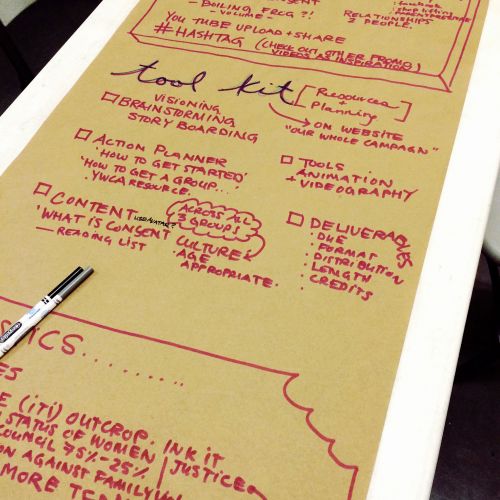 - BOILING FROG?!
- VOLUME -
RELATIONSHIPS
2 PEOPLE.
YOU TUBE UPLOAD + SHARE
# HASHTAG (CHECK OUT OTHER PROMO
VIDEOS AS INSPIRATION)
tool kit [Resources
+
Planning]
→ ON WEBSITE
"OUR WHOLE CAMPAIGN"
VISIONING
BRAINSTORMING
STORY BOARDING
ACTION PLANNER
'HOW TO GET STARTED'
'HOW TO GET A GROUP...'
YWCA RESOURCE.
TOOLS
ANIMATION
+ VIDEOGRAPHY
CONTENT
'WHAT IS CONSENT
- READING LIST
ACROSS ALL
3 GROUPS
CULTURE &
AGE
APPROPRIATE.
DELIVERABLES
. DUE
. FORMAT
. DISTRIBUTION
. LENGTH
. CREDITS
STICS........
ES
E (ITI) OUTCROP. INK IT
STATUS OF WOMEN
COUNCIL 75%-25% JUSTICE
ON AGAINST FAMILY
MORE